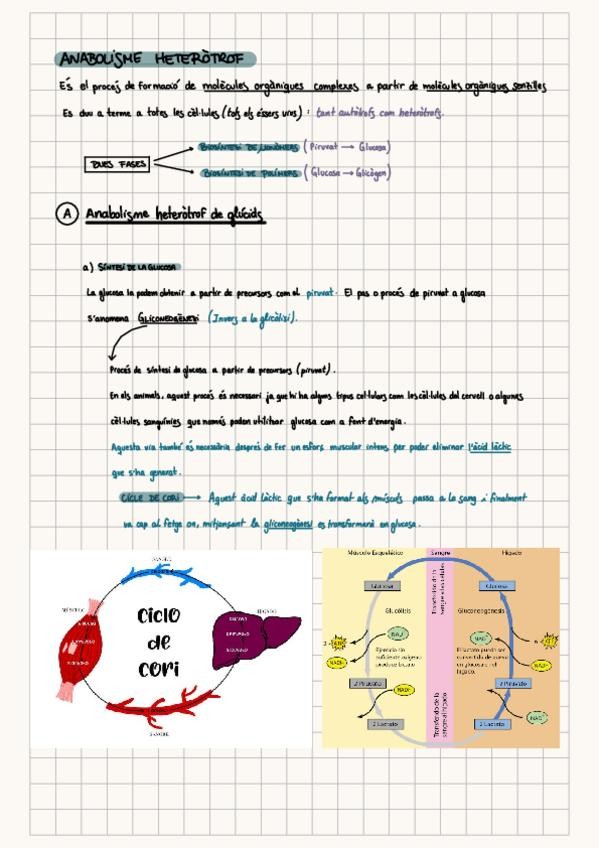 ANABOLISME HETERÒTROF
És el procés de formació de molècules orgàniques complexes a partir de molècules orgàniques senzilles
Es duu a terme a totes les cèl·lules (tots els éssers vius) : tant autòtrofs com heteròtrofs.
DUES FASES
BIOSÍNTESI DE MONÒMERS (Piruvat → Glucosa)
BIOSÍNTESI DE POLÍMERS (Glucosa → Glicògen)
A Anabolisme heteròtrof de glúcids
a) SÍNTESI DE LA GLUCOSA
La glucosa la podem obtenir a partir de precursors com el piruvat. El pas o procés de piruvat a glucosa
s'anomena GLICONEOGÈNESI (Invers a la glicòlisi).
Procés de síntesi de glucosa a partir de precursors (piruvat).
En els animals, aquest procés és necessari ja que hi ha alguns tipus cel·lulars com les cèl·lules del cervell o algunes
cèl·lules sanguínies que només poden utilitzar glucosa com a font d'energia.
Aquesta via també és necessària després de fer un esforç muscular intens per poder eliminar l'àcid làctic
que s'ha generat.
CICLE DE CORI → Aquest àcid làctic que s'ha format als músculs passa a la sang i finalment
va cap al fetge on, mitjançant la gliconeogènesi es transformarà en glucosa.
Ciclo
de
cori
SANGRE
Músculo Esquelético
Sangre
Hígado
Glucosa
Glucosa
Transferido de la sangre a las células
Glucólisis
Gluconeogénesis
NAD
NAD
NADH
NADH
Ejercicio sin
suficiente oxígeno
produce lactato
El lactato puede ser
convertido de nuevo
en glucosa en el
hígado.
2 Piruvato
2 Piruvato
NADH
Transferido de la sangre al hígado
2 Lactato
2 Lactato
NAD